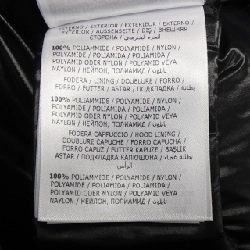 ESTERNO / EXTERIOR / EXTERIEUR / EXTERNO /
AUSSENSEITE
100% POLIAMMIDE / POLYAMIDE / NYLON /
POLYAMIDE / POLIAMIDA / POLIAMIDA /
POLYAMID ODER NYLON / POLYAMID VEYA
NAYLON / НЕЙЛОН, ПОЛИАМИД /
FODERA / LINING / DOUBLURE / FORRO /
FORRO / FUTTER / ASTAR /
100% POLIAMMIDE / POLYAMIDE / NYLON /
POLYAMIDE / POLIAMIDA / POLIAMIDA /
POLYAMID ODER NYLON / POLYAMID VEYA
NAYLON / НЕЙЛОН, ПОЛИАМИД /
FODERA CAPPUCCIO / HOOD LINING /
DOUBLURE CAPUCHE / FORRO CAPUCHA /
FORRO CAPUZ / FUTTER KAPUZE / KAPÜŞON
ASTARI / ПОДКЛАДКА КАПЮШОНА /
100% POLIAMMIDE / POLYAMIDE / NYLON /
POLYAMIDE / POLIAMIDA / POLIAMIDA /
POLYAMID ODER NYLON / POLYAMID VEYA
NAYLON / НЕЙЛОН, ПОЛИАМИД /